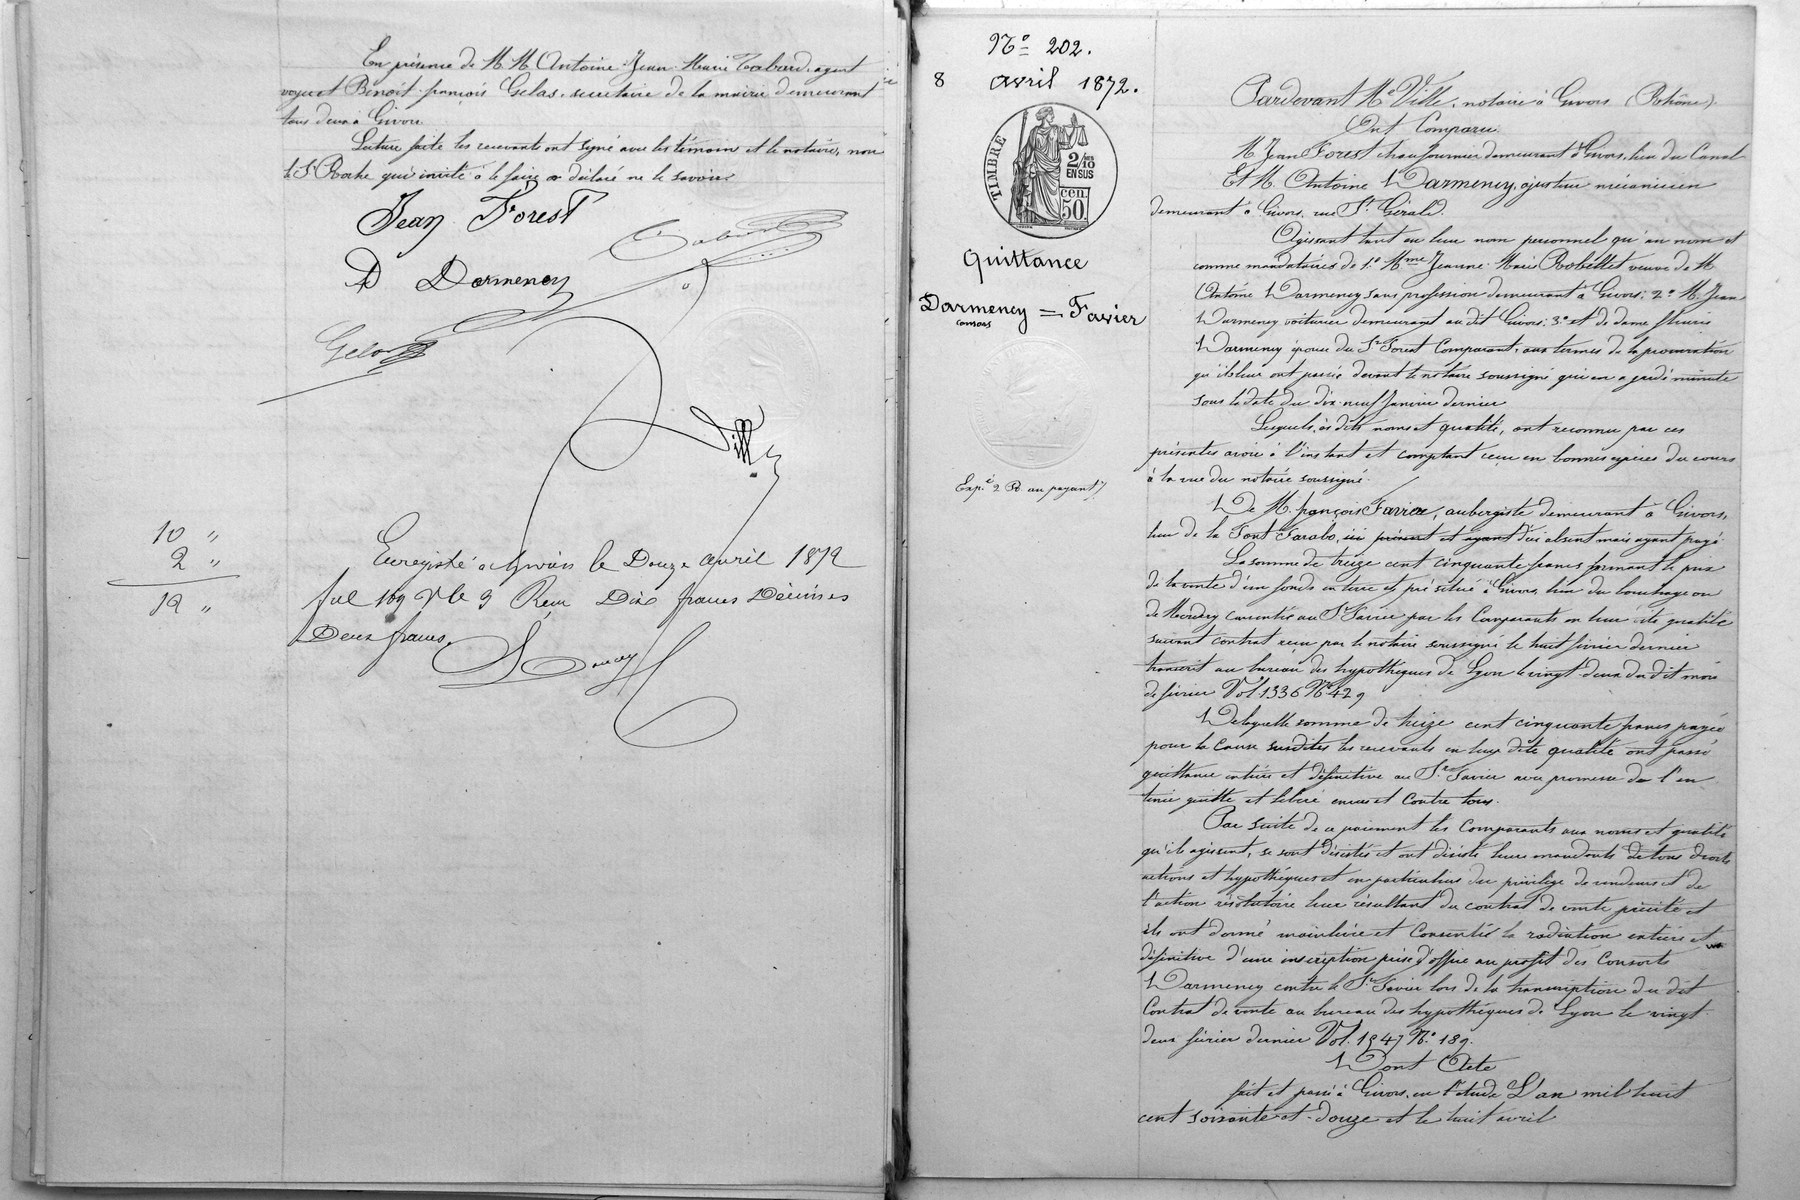 En présence de M. M. Antoine Jean Marie Tabard, agent
voyer et Benoit françois Gelas, secrétaire de la mairie demeurant
tous deux à Givors
Lecture faite les recevants ont signé avec les témoins et le notaire, non
le Sr Roche qui invité à le faire a déclaré ne le savoir
Jean Forest
Tabard
D Darmency
Gelas
Ville
10 "
2 "
12 "
Enregistré à Givors le Douze avril 1872
fol 169 Vº Cº 9 Reçu Dix francs Décimes
Deux francs
Nº 202.
8 avril 1872.
TIMBRE
2/10 EN SUS
50 CEN.
Quittance
Darmency = Favier
consors
Exp.é 2 R au payant
Pardevant Me Ville, notaire à Givors (Rhône).
Ont Comparu
M. Jean Forest chaufournier demeurant à Givors, lieu du Canal
Et M. Antoine Darmency, ajusteur mécanicien
demeurant à Givors, rue St Gérald.
Agissant tant en leur nom personnel qu'au nom et
comme mandataires de 1º Mme Jeanne Marie Robellet veuve de M.
Antoine Darmency sans profession demeurant à Givors; 2º M. Jean
Darmency voiturier demeurant au dit Givors; 3º et de dame
Darmency épouse du Sr Forest Comparant, aux termes de la procuration
qu'ils leur ont passée devant le notaire soussigné qui en a gardé minute
sous la date du dix-neuf Janvier dernier
Lesquels, ès dits noms et qualité, ont reconnu par ces
présentes avoir à l'instant et comptant reçu en bonnes espèces du cours
à la vue du notaire soussigné
De M. françois Favier, aubergiste demeurant à Givors,
lieu de la Font Farabo, ici présent et ayant d'ici absent mais ayant payé
La somme de treize cent cinquante francs formant le prix
de la vente d'un fonds en terre et pré situé à Givors, lieu du bouchage ou
de Mordery consentie au Sr Favier par les Comparants en leur dite qualité
suivant contrat reçu par le notaire soussigné le huit février dernier
transcrit au bureau des hypothèques de Lyon le vingt-deux du dit mois
de février Vol. 1336 Nº 429
De laquelle somme de treize cent cinquante francs payée
pour la Cause susdites les recevants en leur dite qualité ont passé
quittance entière et définitive au Sr Favier avec promesse de l'en
tenir quitte et libéré envers et Contre tous.
Par suite de ce paiement les Comparants aux noms et qualité
qu'ils agissent, se sont désistés et ont désisté leurs mandants de tous droits
actions et hypothèques et en particulier du privilège de vendeurs et de
l'action résolutoire leur résultant du contrat de vente précité et
ils ont donné mainlevée et Consenti à la radiation entière et
définitive d'une inscription prise d'office au profit des Consorts
Darmency contre le Sr Favier lors de la transcription du dit
Contrat de vente au bureau des hypothèques de Lyon le vingt
deux février dernier Vol. 1547 Nº 189.
Dont Acte
fait et passé à Givors, en l'étude L'an mil huit
cent soixante-et-douze et le huit avril